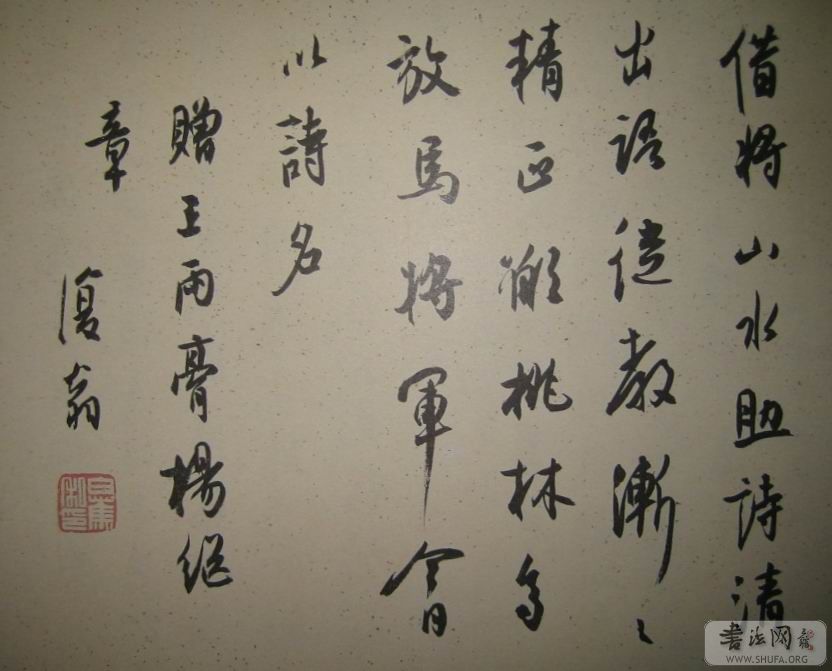 借将山水助詩清
出語従教漸〻
精正洲桃林多
放馬将軍會
以詩名
贈王雨膏楊继
章
復翁
書法网
WWW.SHUFA.ORG